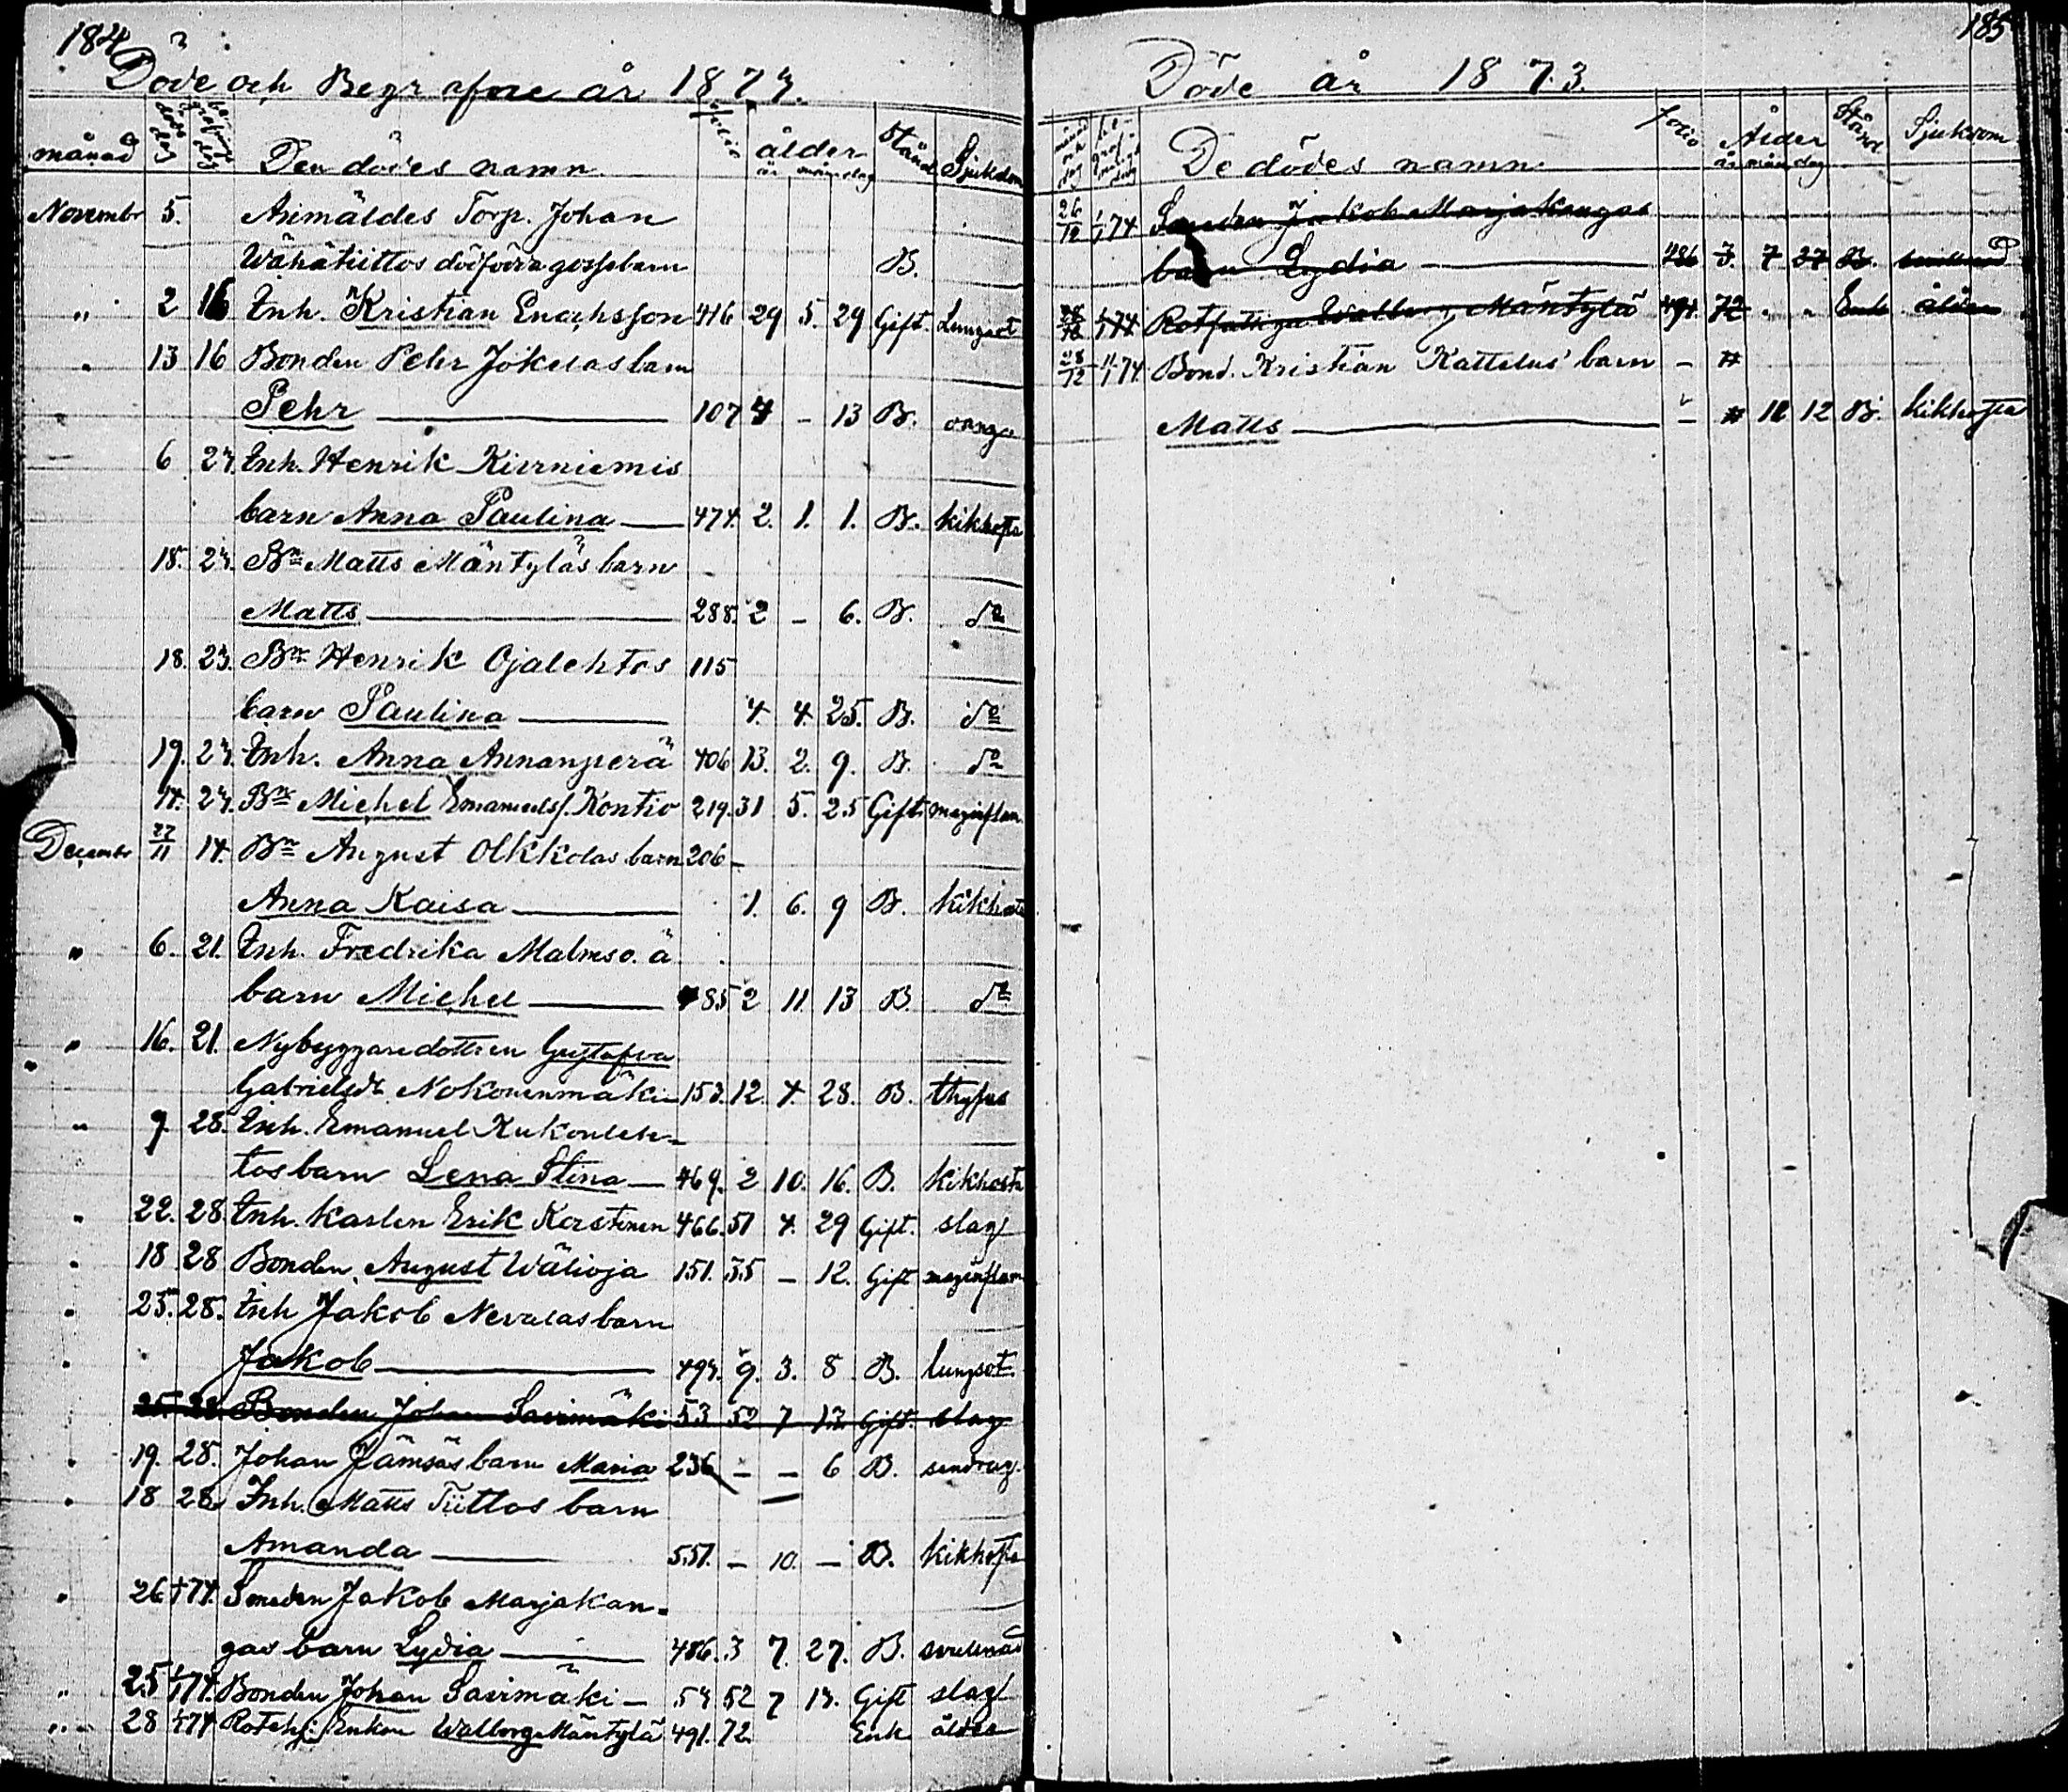 184
Döde och Begrafne år 1873.
månad döds dag begrafnings dag Den dödes namn folio ålder år mån dag Stånd Sjukdom
Novembr 5. Anmäldes Torp. Johan
Wähätiittos dödfödda gossebarn B.
" 2 16 Inh. Kristian Enochsson 416 29 5. 29 Gift. Lungsot
" 13 16 Bonden Pehr Jokelas barn
Pehr 107 4 - 13 B.
6 23. Inh. Henrik Kierniemis
barn Anna Paulina 474. 2. 1. 1. B. kikhosta
18. 23. Bn Matts Mäntyläs barn
Matts 288. 2 - 6. B. do
18. 23. Bn Henrik Ojalehtos 115
barn Paulina 4. 4. 25. B. do
19. 23. Inh. Anna Annanperä 406 13. 2. 9. B. do
14. 23. Bn Michel Emanuelss. Kontio 219. 31 5. 25 Gift maginflam.
Decembr 27/11 14. Bn August Olkkolas barn 206
Anna Kaisa 1. 6. 9 B. kikhosta
" 6. 21. Inh. Fredrika Malmso. ä
barn Michel 485 2 11. 13 B. do
" 16. 21. Nybyggaredottren Gustafva
Gabrielsdr. Nokonenmäki 153. 12. 4. 28. B. thyfus
" 9. 28. Inh. Emanuel Kukonleh-
tos barn Lena Stina 469. 2 10. 16. B. kikhosta
" 22. 28. Inh. karlen Erik Kerstinen 466. 51 4. 29 Gift. slag
" 18 28 Bonden August Wälioja 151. 35 - 12. Gift maginflam
" 25. 28. Inh Jakob Nevalas barn
" Jakob 493. 9. 3. 8 B. lungsot.
25. 28. Bonden Johan Savimäki 53. 52 7 13. Gift. slag
" 19. 28. Johan Jämsäs barn Maria 236 - - 6 B. sendrag.
" 18 28. Inh. Matts Tiittos barn
Amanda 551. - 10. - B. kikhosta
" 26 74. Smeden Jakob Marjakan-
gas barn Lydia 486. 3 7. 27. B.
" 25 74. Bonden Johan Savimäki - 53 52 7 13. Gift slag
" 28 74 Rotehj. Enkan Walborg Mäntylä 491. 72. Enk. ålder
185
Döde år 1873.
månad och dag begrafnings dag De dödes namn. folio Ålder år mån dag Stånd Sjukdom
26/12 74 Smeden Jakob Marjakangas
barn Lydia 486 3. 7 27 B.
28/12 74 Rotfattiga Walborg Mäntylä 491. 72 " " Enk ålder
28/12 74 Bond. Kristian Kattelus' barn -
Matts - 11 12 B. kikhosta